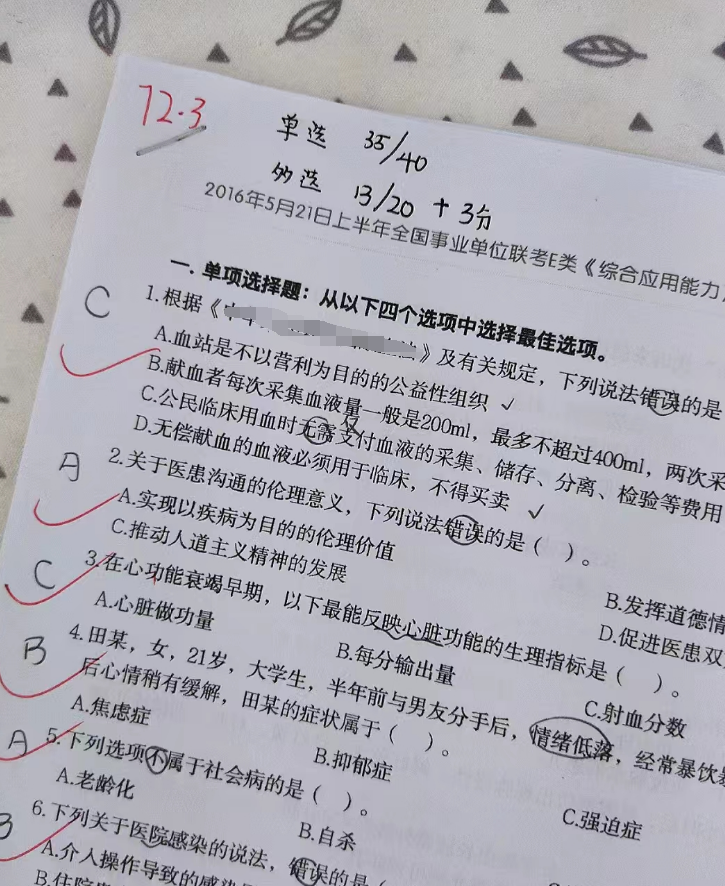 72.3
单选 35/40
多选 13/20 + 3分
2016年5月21日上半年全国事业单位联考E类《综合应用能力
一. 单项选择题：从以下四个选项中选择最佳选项。
C 1.根据《 》及有关规定，下列说法错误的是
A.血站是不以营利为目的的公益性组织 ✓
B.献血者每次采集血液量一般是200ml，最多不超过400ml，两次采
仅
C.公民临床用血时无需支付血液的采集、储存、分离、检验等费用
D.无偿献血的血液必须用于临床，不得买卖 ✓
A 2.关于医患沟通的伦理意义，下列说法错误的是（ ）。
A.实现以疾病为目的的伦理价值 B.发挥道德情
C.推动人道主义精神的发展 D.促进医患双
C 3.在心功能衰竭早期，以下最能反映心脏功能的生理指标是（ ）。
A.心脏做功量 B.每分输出量 C.射血分数
B 4.田某，女，21岁，大学生，半年前与男友分手后，情绪低落，经常暴饮暴
后心情稍有缓解，田某的症状属于（ ）。
A.焦虑症 B.抑郁症 C.强迫症
A 5.下列选项不属于社会病的是（ ）。
A.老龄化 B.自杀
B 6.下列关于医院感染的说法，错误的是（
A.介入操作导致的感染
B.住院